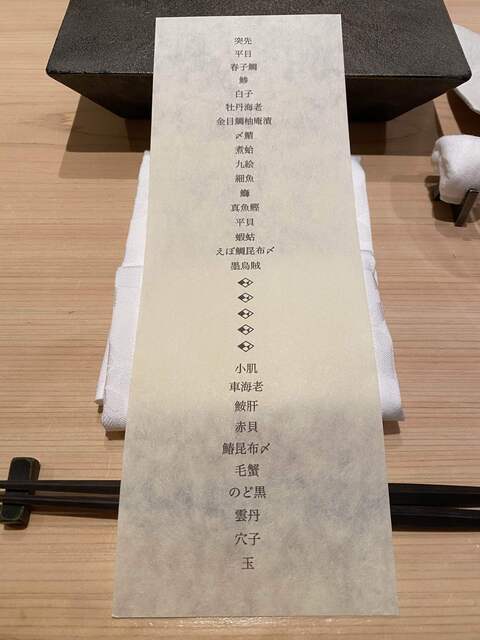 突先
平目
春子鯛
鯵
白子
牡丹海老
金目鯛柚庵漬
〆鯖
煮蛤
九絵
細魚
鰤
真魚鰹
平貝
蝦蛄
えぼ鯛昆布〆
墨烏賊
小肌
車海老
鮟肝
赤貝
鰆昆布〆
毛蟹
のど黒
雲丹
穴子
玉